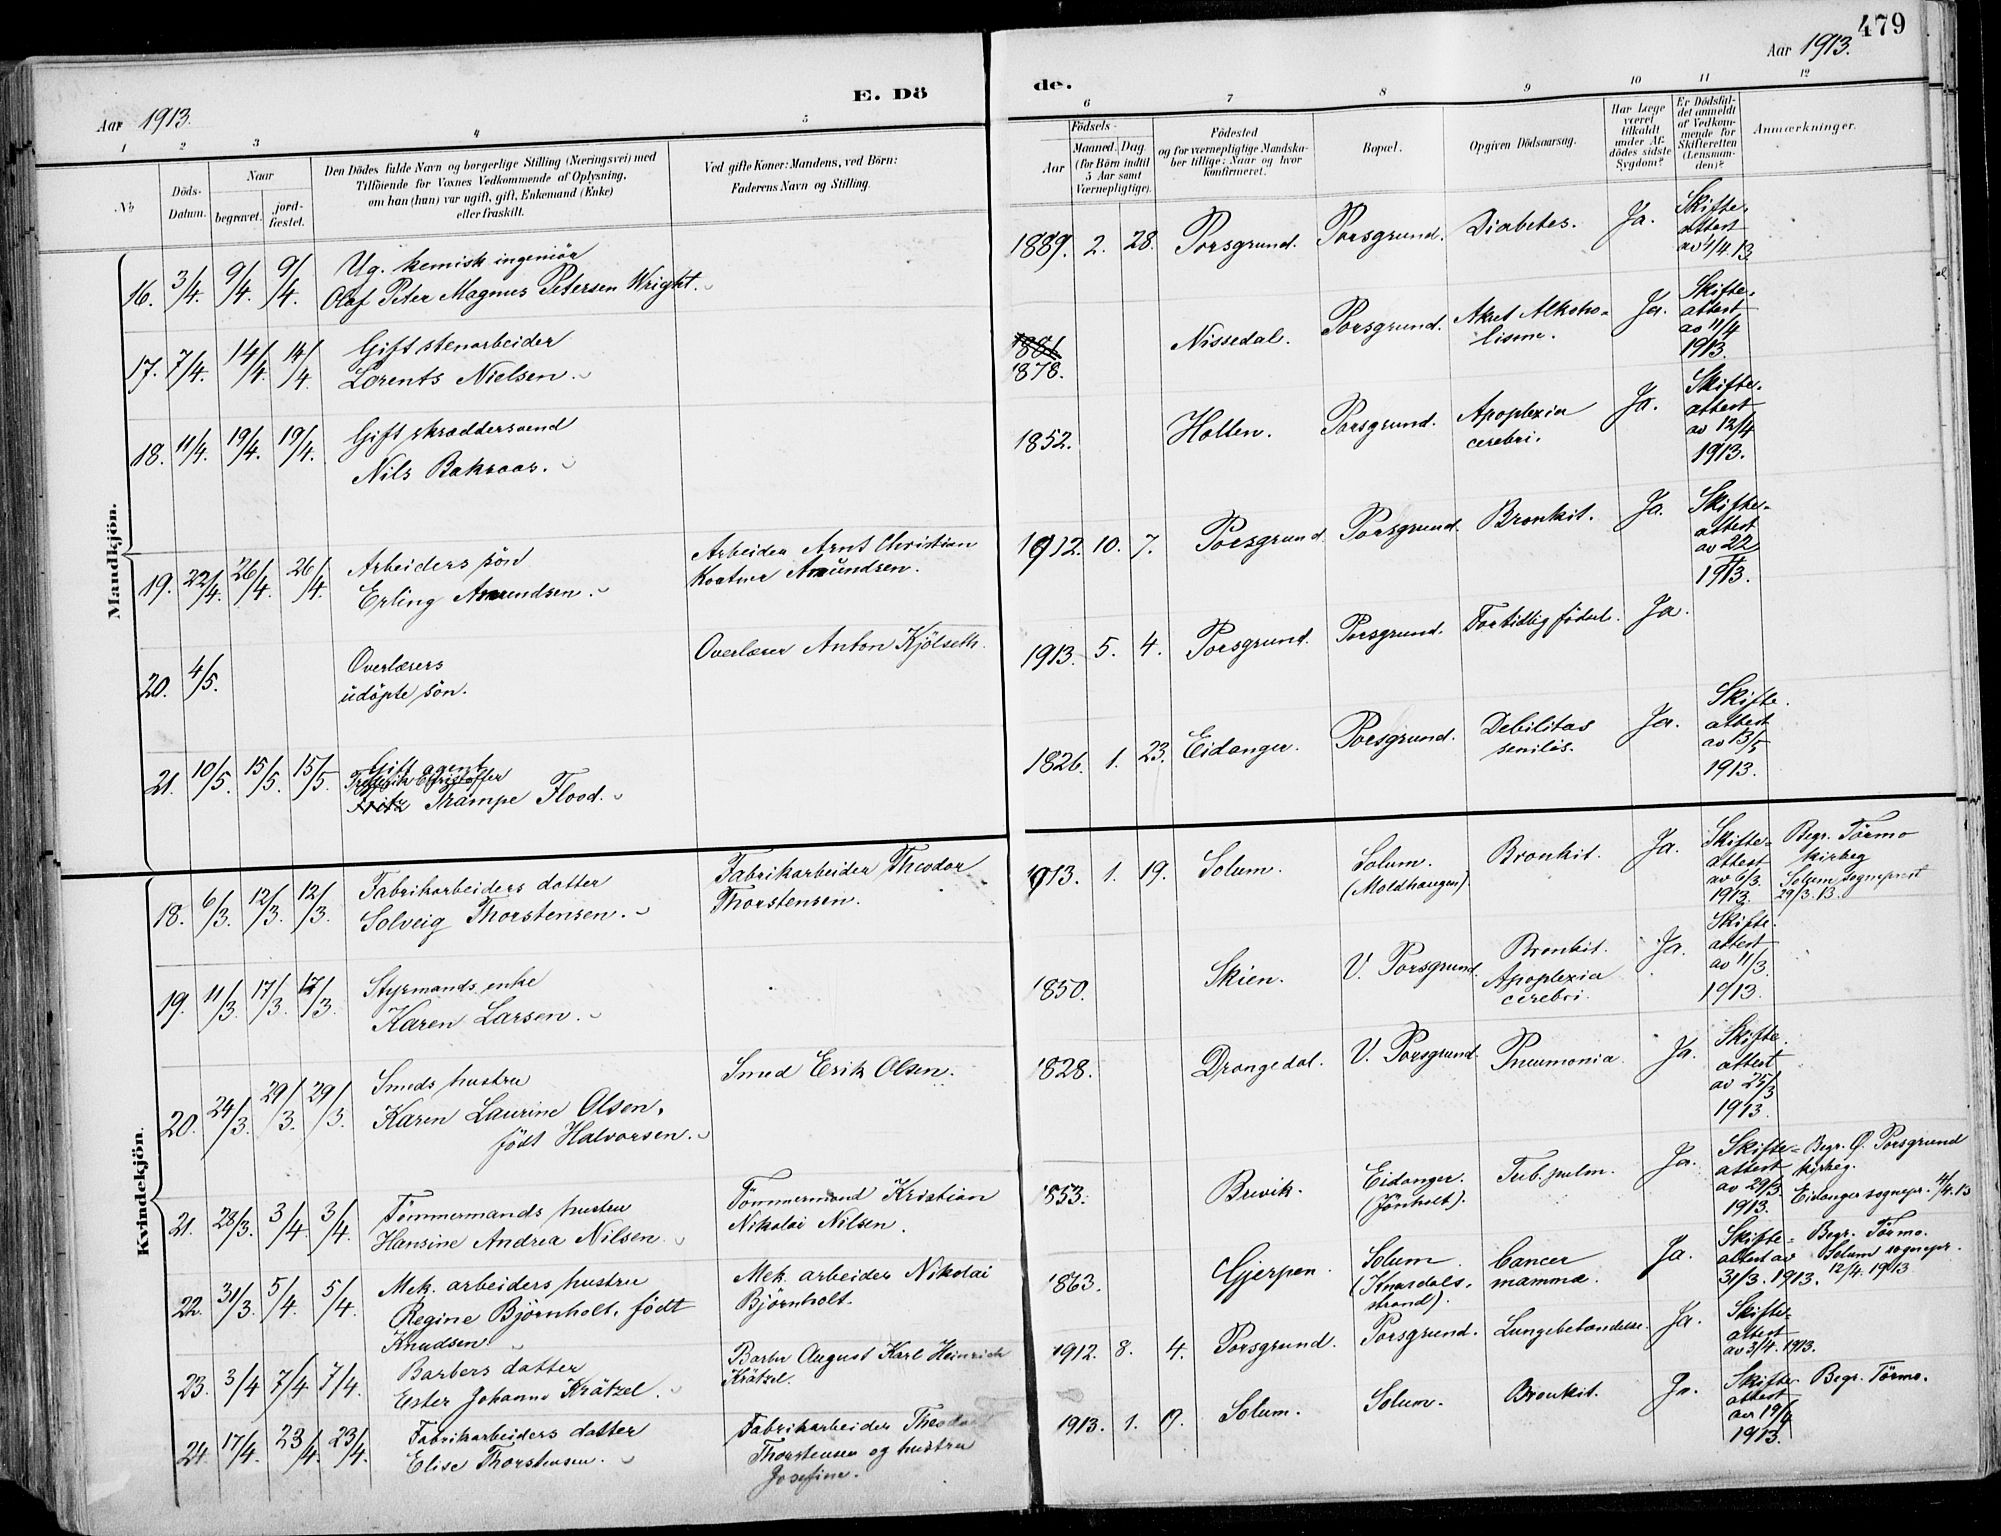 479
Aar 1913.
Aar 1913.
E. Dö
de.
1 2 3 4 5
6 7 8 9 10 11 12
No
Döds-Datum.
Naar
begravet.
jord-fæstet.
Den Dödes fulde Navn og borgerlige Stilling (Næringsvei) med
Tilföiende for Voxnes Vedkommende af Oplysning,
om han (hun) var ugift, gift, Enkemand (Enke)
eller fraskilt.
Ved gifte Koner: Mandens, ved Börn:
Faderens Navn og Stilling.
Födsels-
Aar
Maaned. Dag.
(for Börn indtil
5 Aar samt
Værnepligtige).
Födested
og for værnepligtige Mandska-
ber tillige: Naar og hvor
konfirmeret.
Bopæl.
Opgiven Dödsaarsag.
Har Læge
været
tilkaldt
under Af-
dödes sidste
Sygdom?
Er Dödsfal-
det anmeldt
af Vedkom-
mende for
Skifteretten
(Lensman-
den)?
Anmærkninger.
Mandkjön.
16. 3/4. 9/4. 9/4.
Ug. kemisk ingeniör
Olaf Peter Magnus Petersen Wright.
1889. 2. 28. Porsgrund. Porsgrund. Diabetes. Ja.
Skifte-
attest
av 4/4. 13
17. 7/4. 14/4. 14/4.
Gift stenarbeider
Lorents Nielsen.
1881
1878.
Nissedal. Porsgrund. Akut Alkoho-
lisme.
Ja.
Skifte-
attest
av 11/4
1913.
18. 11/4. 19/4. 19/4.
Gift skræddersvend
Nils Bakraas.
1852. Hollen. Porsgrund. Apoplexia
cerebri.
Ja.
Skifte-
attest
av 12/4
1913.
19. 22/4. 26/4. 26/4.
Arbeiders sön
Erling Amundsen.
Arbeider Arnt Christian
Koatner Amundsen.
1912. 10. 7. Porsgrund. Porsgrund. Bronkit. Ja.
Skifte-
attest
av 22/4
1913.
20. 4/5.
Overlærers
udöpte sön.
Overlærer Anton Kjölseth.
1913. 5. 4. Porsgrund. Porsgrund. For tidlig födsel. Ja.
21. 10/5. 15/5. 15/5.
Gift agent
Fredrik Christoffer
Fritz Trampe Flood.
1826. 1. 23. Eidanger. Porsgrund. Debilitas
senilis.
Ja.
Skifte-
attest
av 13/5
1913.
Kvindekjön.
18. 6/3. 12/3. 12/3.
Fabrikarbeiders datter
Solveig Thorstensen.
Fabrikarbeider Theodor
Thorstensen.
1913. 1. 19. Solum. Solum.
(Moldhaugen).
Bronkit. Ja.
Skifte-
attest
av 6/3.
1913.
Begr. Törmo
kirkeg
Solum sogneprest
29/3. 13.
19. 11/3. 17/3. 17/3.
Styrmands enke
Karen Larsen.
1850. Skien. V. Porsgrund. Bronkit.
Apoplexia
cerebri.
Ja.
Skifte-
attest
av 11/3.
1913.
20. 24/3. 29/3. 29/3.
Smeds hustru
Karen Laurine Olsen,
födt Halvorsen.
Smed Erik Olsen.
1828. Drangedal. V. Porsgrund. Pneumonia. Ja.
Skifte-
attest
av 25/3
1913.
21. 28/3. 3/4. 3/4.
Tömmermands hustru
Hansine Andrea Nilsen.
Tömmermand Kristian
Nikolai Nilsen.
1853. Brevik. Eidanger.
(Jönholt).
Tub. pulm. Ja.
Skifte-
attest
av 29/3.
1913.
Begr. Ø. Porsgrund
kirkeg.
Eidanger sognepr. 4/4. 13
22. 31/3. 5/4. 5/4.
Mek. arbeiders hustru
Regine Björnholt, födt
Knudsen.
Mek. arbeider Nikolai
Björnholt.
1863. Gjerpen. Solum
(Knardals-
strand).
Cancer
mammæ.
Ja.
Skifte-
attest av
31/3. 1913.
Begr. Törmo.
Solum sognepr.
12/4. 1913
23. 3/4 7/4 7/4.
Barbers datter
Ester Johanne Krätzel.
Barber August Karl Heinrich
Krätzel.
1912. 8. 4. Porsgrund. Porsgrund. Lungebetændelse. Ja.
Skifte-
attest
av 3/4. 1913.
24. 17/4. 23/4. 23/4.
Fabrikarbeiders datter
Elise Thorstensen.
Fabrikarbeider Theodor
Thorstensen og hustru
Josefine.
1913. 1. 9. Solum. Solum. Bronkit. Ja.
Skifte-
attest
av 19/4
1913.
Begr. Törmo.